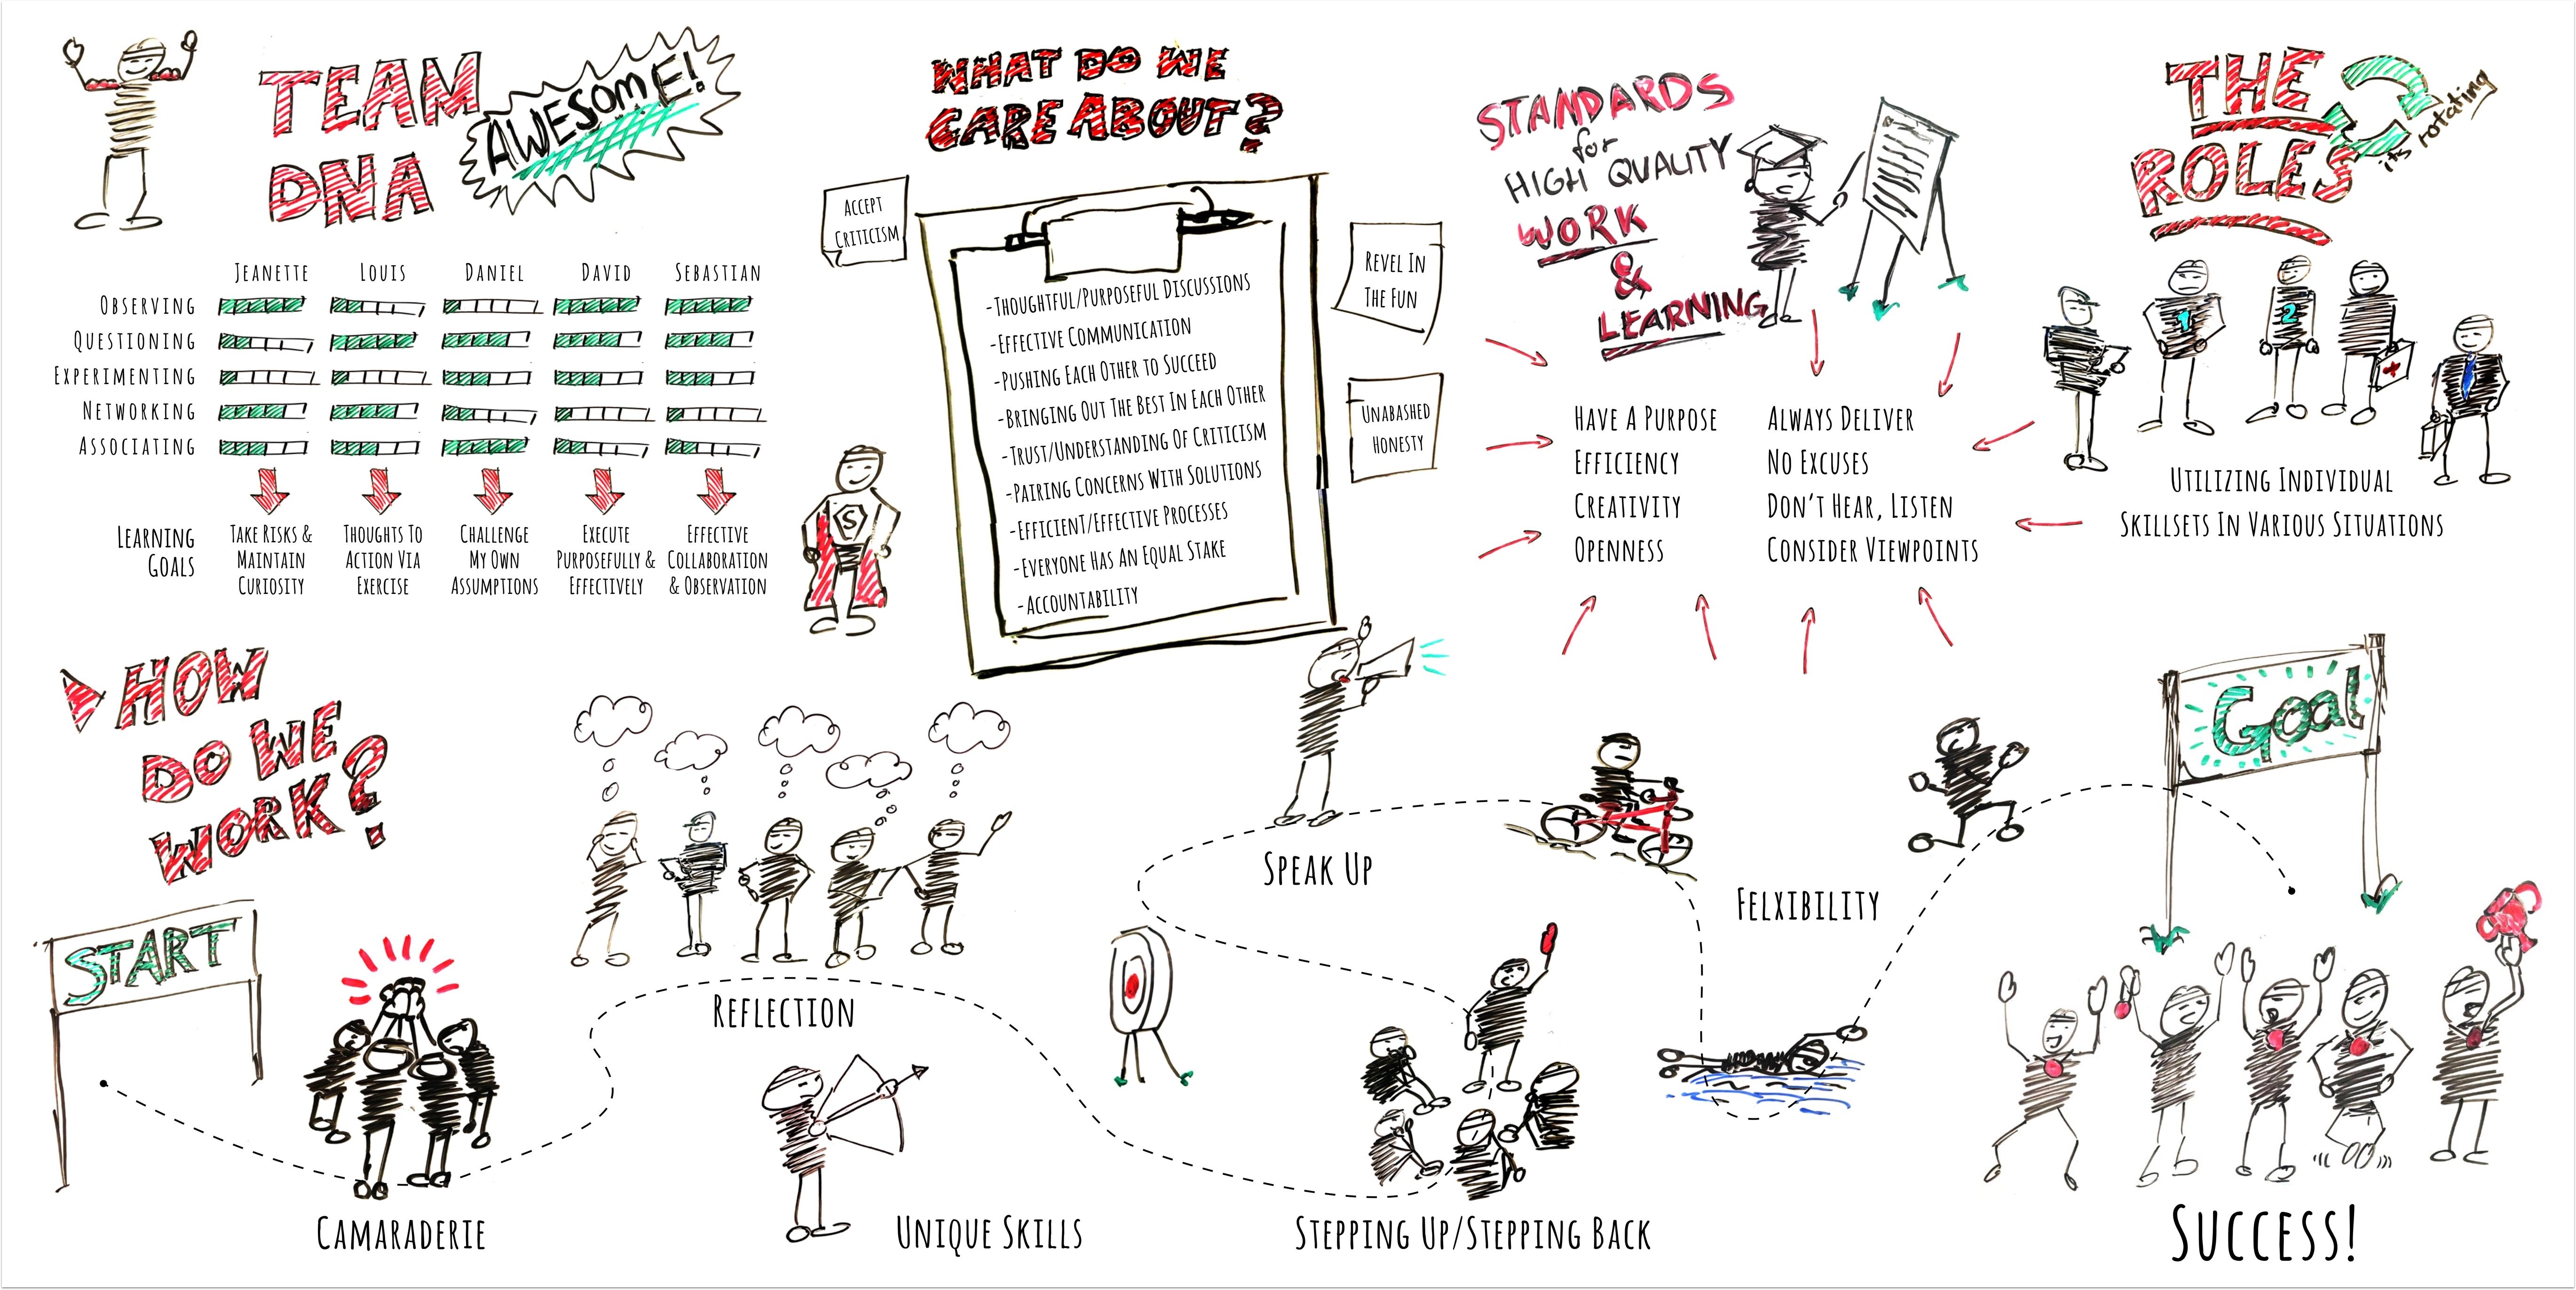 TEAM
DNA
AWESOME!
JEANETTE LOUIS DANIEL DAVID SEBASTIAN
OBSERVING
QUESTIONING
EXPERIMENTING
NETWORKING
ASSOCIATING
LEARNING
GOALS
TAKE RISKS &
MAINTAIN
CURIOSITY
THOUGHTS TO
ACTION VIA
EXERCISE
CHALLENGE
MY OWN
ASSUMPTIONS
EXECUTE
PURPOSEFULLY &
EFFECTIVELY
EFFECTIVE
COLLABORATION
& OBSERVATION
WHAT DO WE
CARE ABOUT?
ACCEPT
CRITICISM
-THOUGHTFUL/PURPOSEFUL DISCUSSIONS
-EFFECTIVE COMMUNICATION
-PUSHING EACH OTHER TO SUCCEED
-BRINGING OUT THE BEST IN EACH OTHER
-TRUST/UNDERSTANDING OF CRITICISM
-PAIRING CONCERNS WITH SOLUTIONS
-EFFICIENT/EFFECTIVE PROCESSES
-EVERYONE HAS AN EQUAL STAKE
-ACCOUNTABILITY
REVEL IN
THE FUN
UNABASHED
HONESTY
S
STANDARDS
for
HIGH QUALITY
WORK
&
LEARNING
HAVE A PURPOSE
EFFICIENCY
CREATIVITY
OPENNESS
ALWAYS DELIVER
NO EXCUSES
DON'T HEAR, LISTEN
CONSIDER VIEWPOINTS
THE
ROLES
its rotating
1
2
UTILIZING INDIVIDUAL
SKILLSETS IN VARIOUS SITUATIONS
HOW
DO WE
WORK?
START
CAMARADERIE
REFLECTION
UNIQUE SKILLS
STEPPING UP/STEPPING BACK
SPEAK UP
FELXIBILITY
Goal
SUCCESS!